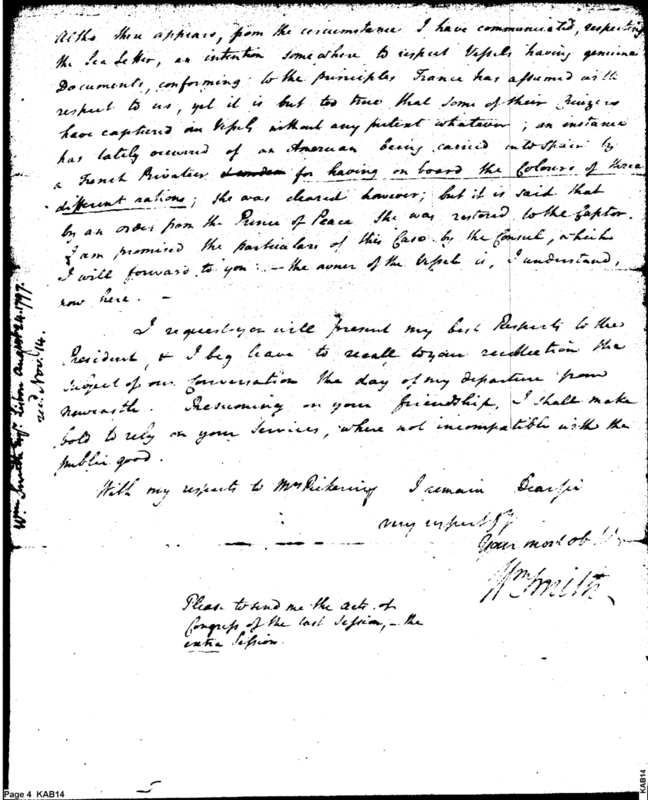 Altho there appears, from the circumstance I have communicated, respecting
the Sea letter, an intention somewhere to respect Vessels having genuine
Documents, conforming to the principles France has assumed with
respect to us, yet it is but too true that some of their Cruizers
have captured our Vessels without any pretext whatever; an instance
has lately occurred of an American being carried into Spain by
a French Privateer for having on board the Colours of three
different nations; she was cleared however; but it is said that
by an order from the Prince of Peace she was restored to the Captor.
I am promised the particulars of this Case by the Consul, which
I will forward to you – the owner of the Vessel is, I understand,
now here. –
I request you will present my best Respects to the
President, & I beg leave to recall to your recollection the
subject of our Conversation the day of my departure from
Newcastle. Presuming on your friendship, I shall make
bold to rely on your services, where not incompatible with the
public good.
With my respects to Mrs Pickering I remain Dear Sir
very respecty
Your most ob
Wm Smith
Please to send me the acts of
Congress of the last Session, – the
extra Session.
Wm Smith Esqr. Lisbon August 24. 1797.
recd. Nov. 14.
Page 4 KAB14
KAB14